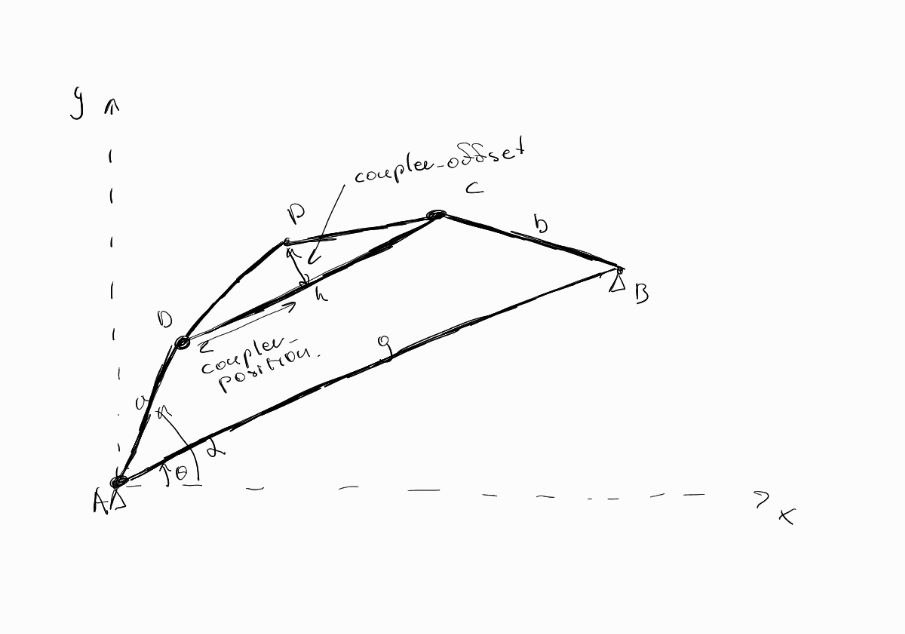 y
coupler-offset
C
P
b
B
h
D
coupler-
position.
g
a
α
θ
A
x